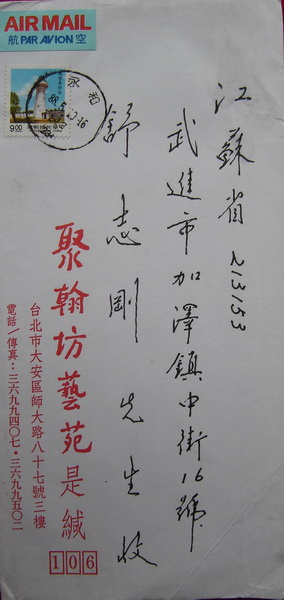 AIR MAIL
航 PAR AVION 空
9.00
江蘇省 213153
武進市加澤鎮中街16號
舒志剛先生收
聚翰坊藝苑是緘
台北市大安區師大路八十七號三樓
電話/傳真:三六九九四〇七·三六九九五〇二
106